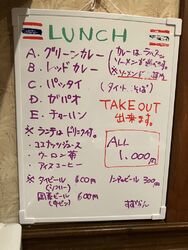 LUNCH
A. グリーンカレー
B. レッドカレー
C. パッタイ
D. ガパオ
E. チャーハン
カレーは、ライス or
ソーメンが選べます。
※ソーメンは
(タイ
TAKE OUT
出来ます。
ALL
1,000
※ ランチはドリンク付。
・ココナッツジュース
・ウーロン茶
・アイスコーヒー
※ タイビール 600円
(シンハー)
国産ビール 600円
ノンアルビール 300円